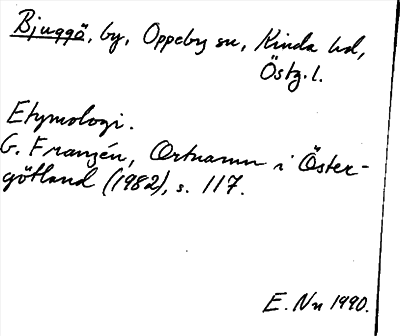 Bjuggö, by, Oppeby sn, Kinda hd,
Östg.l.
Etymologi.
G. Franzén, Ortnamn i Öster-
götland (1982), s. 117.
E. Nn 1990.